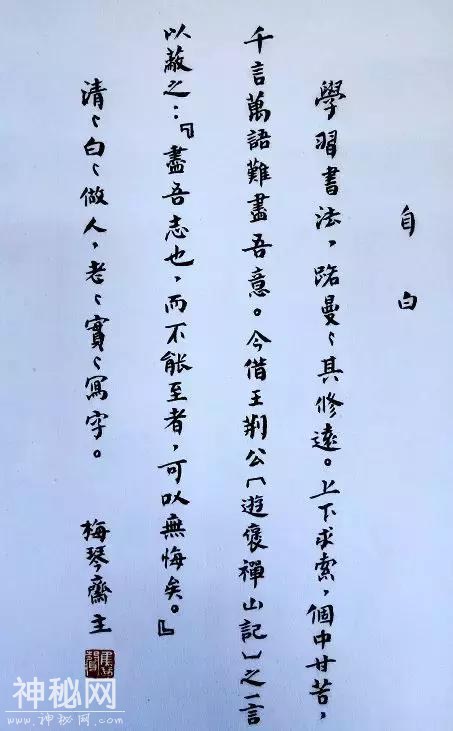 自白
學習書法，路曼〻其修遠。上下求索，個中甘苦，
千言萬語難盡吾意。今借王荆公「遊褒禪山記」之一言
以蔽之：『盡吾志也，而不能至者，可以無悔矣。』
清〻白〻做人，老〻實〻寫字。
梅琴齋主
神秘网
www.shenmiwang.com